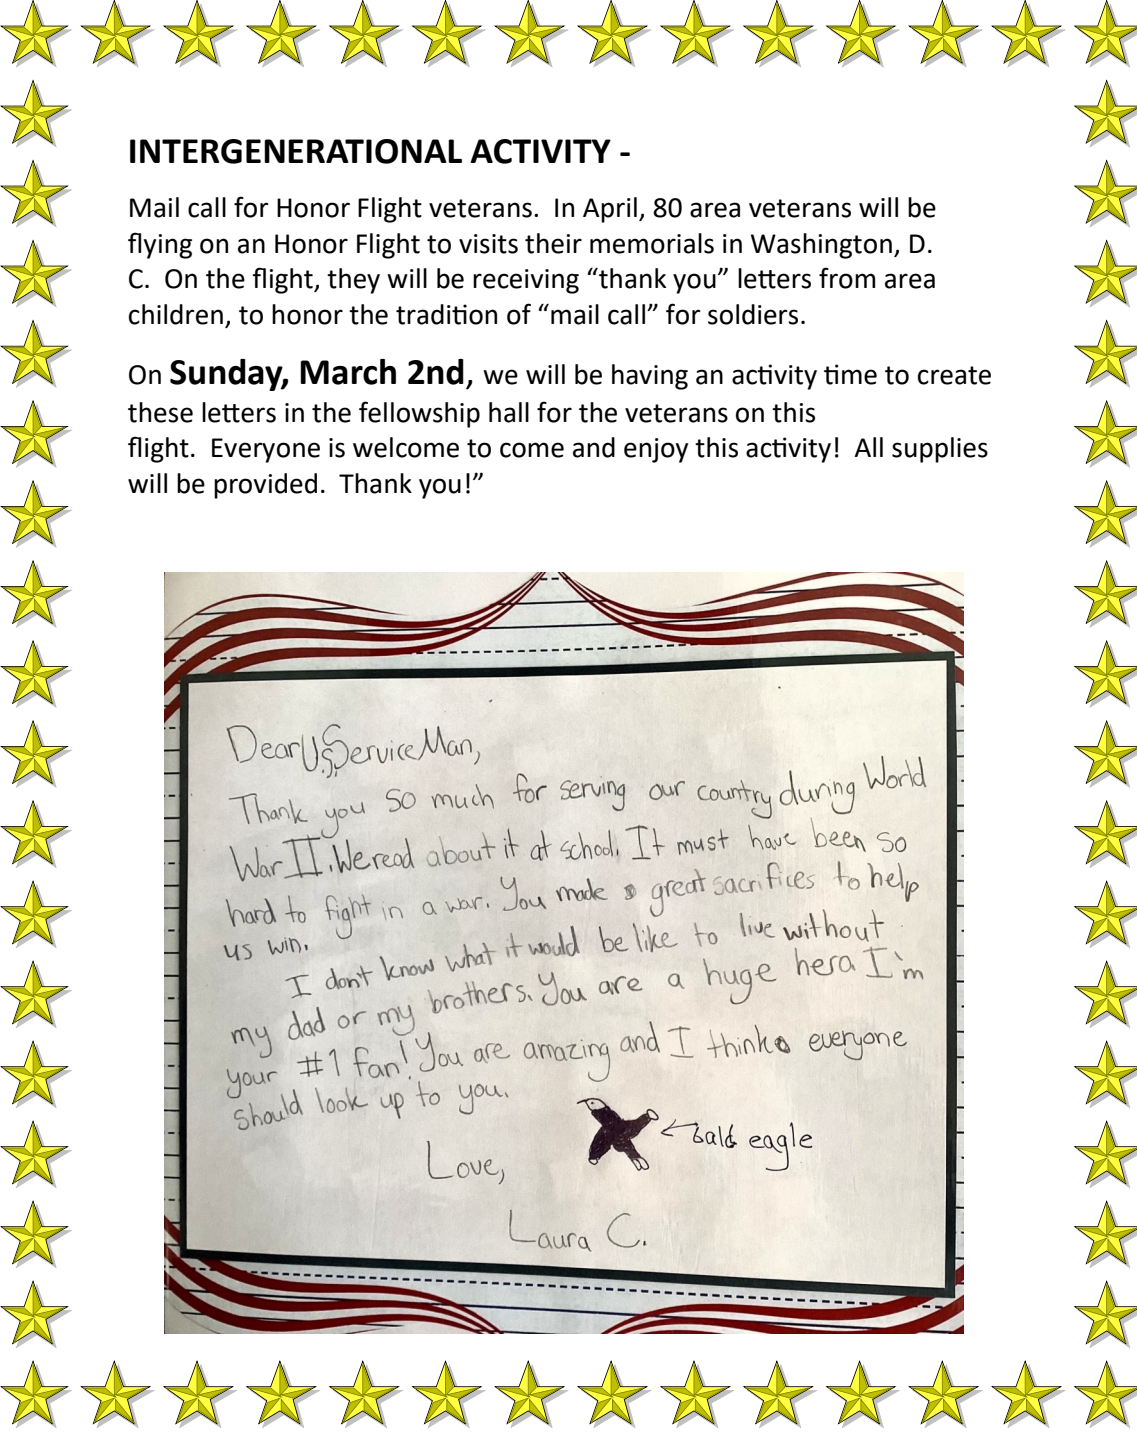 INTERGENERATIONAL ACTIVITY -
Mail call for Honor Flight veterans.  In April, 80 area veterans will be
flying on an Honor Flight to visits their memorials in Washington, D.
C.  On the flight, they will be receiving “thank you” letters from area
children, to honor the tradition of “mail call” for soldiers.
On Sunday, March 2nd, we will be having an activity time to create
these letters in the fellowship hall for the veterans on this
flight.  Everyone is welcome to come and enjoy this activity!  All supplies
will be provided.  Thank you!”
Dear U.S. Service Man,
Thank you so much for serving our country during World
War II. We read about it at school. It must have been so
hard to fight in a war. You made great sacrifices to help
us win.
I don't know what it would be like to live without
my dad or my brothers. You are a huge hero. I'm
your #1 fan! You are amazing and I think everyone
should look up to you.
← bald eagle
Love,
Laura C.